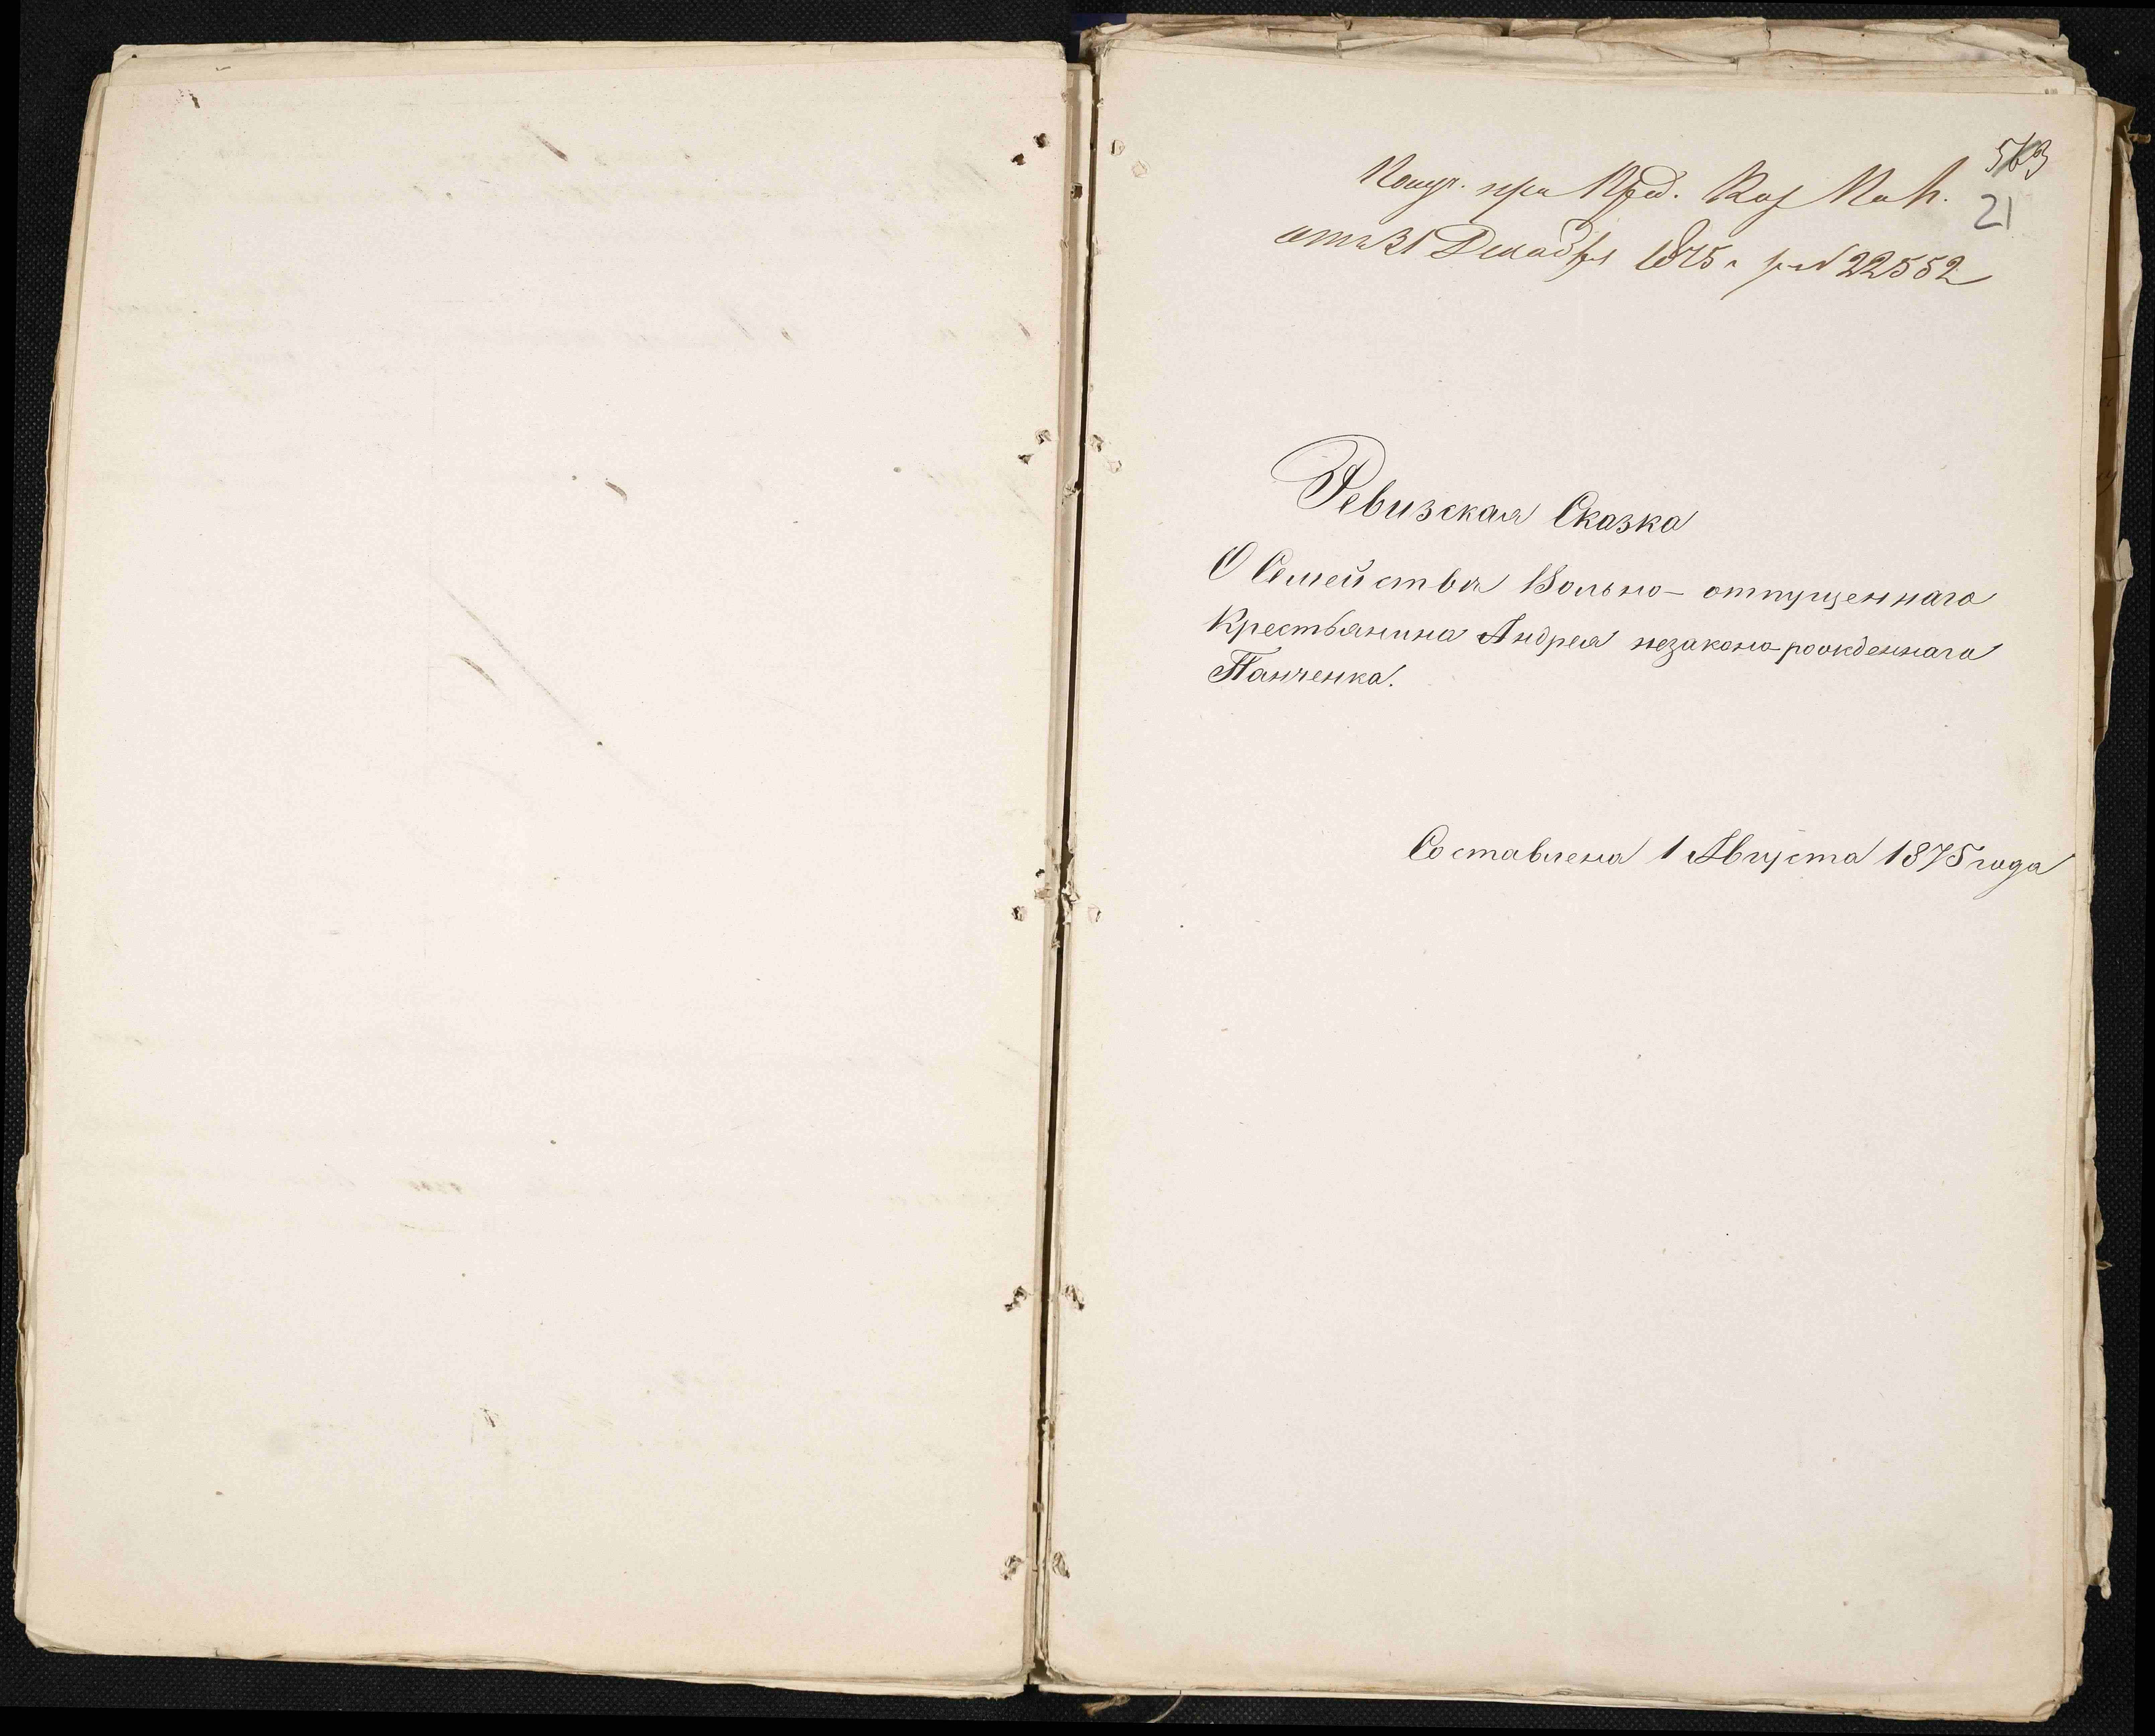 563
21
Получ. при Пред. Каз Пал.
отъ 31 Декабря 1875 г за № 22552
Ревизская Сказка
О Семействѣ Вольно-отпущеннаго
Крестьянина Андрея незаконо-рожденнаго
Панченка.
Составлена 1 Августа 1875 года